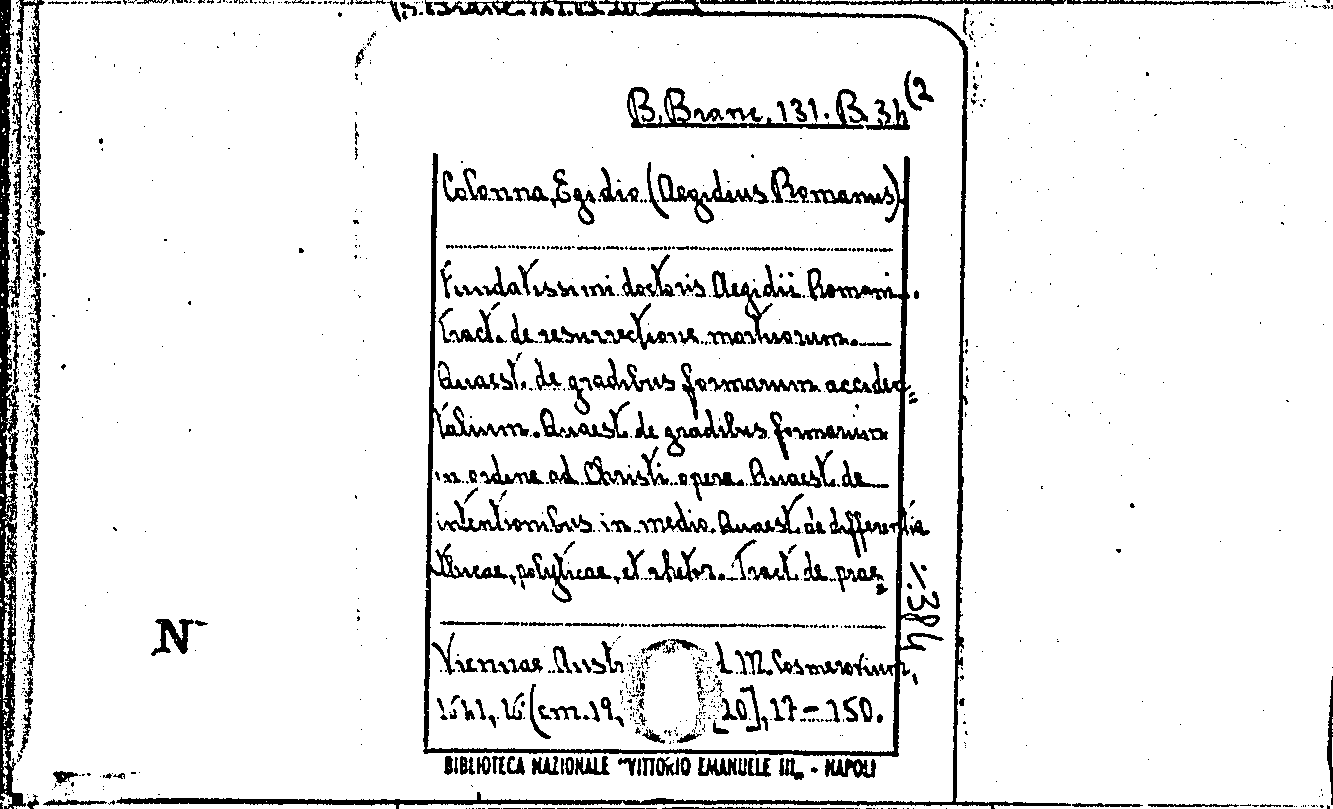 B. Branc. 131. B. 34 (2
Colonna, Egidio (Aegidius Romanus)
Fundatissimi doctoris Aegidii Romani.
Tract. de resurrectione mortuorum.
Quaest. de gradibus formarum acciden=
talium. Quaest. de gradibus formarum
in ordine ad Christi opera. Quaest. de
intentionibus in medio. Quaest. de differentia
Ethicae, polyticae, et rhetor. Tract. de prae=
./. 384
N
Viennae Austr L. M. Cosmerovium,
1641, (cm. 19, [20], 17-150.
BIBLIOTECA NAZIONALE "VITTORIO EMANUELE III„ - NAPOLI